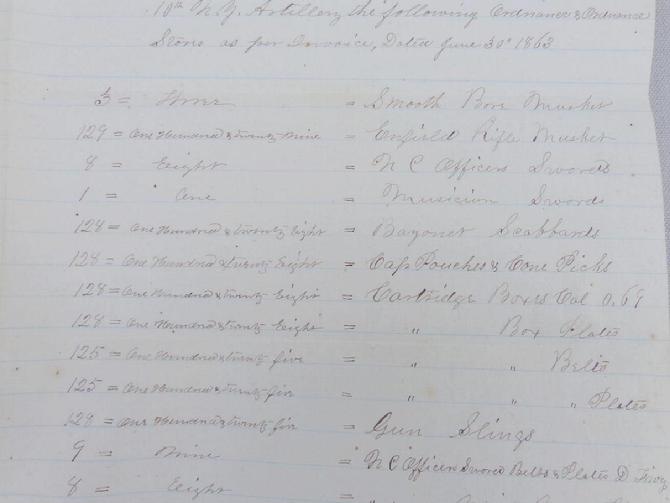 10th N.Y. Artillery the following Ordnance & Ordnance
Stores as per Invoice, Dated June 30th 1863
3 = Three = Smooth Bore Musket
129 = One Hundred & twenty Nine = Enfield Rifle Musket
8 = Eight = N C Officers Swords
1 = One = Musician Swords
128 = One Hundred & twenty Eight = Bayonet Scabbards
128 = One Hundred & twenty Eight = Cap Pouches & Cone Picks
128 = One Hundred & twenty Eight = Cartridge Boxes Cal 0.69
128 = One Hundred & twenty Eight = " Box Plates
125 = One Hundred & twenty five = " " Belts
125 = One Hundred & twenty five = " " " Plates
128 = One Hundred & twenty five = Gun Slings
9 = Nine = N C Officers Sword Belts & Plates D
8 = Eight =